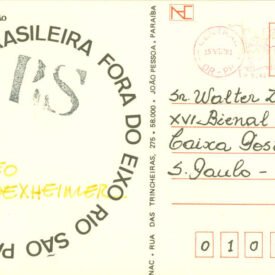 ÃO
BRASILEIRA FORA DO EIXO RIO SÃO PA
RS
EO
DEXHEIMER
NAC - RUA DAS TRINCHEIRAS, 275 - 58.000 - JOÃO PESSOA, PARAÍBA
Sr. Walter Z
XVI Bienal
Caixa Pos
S. Paulo -
0 1 0